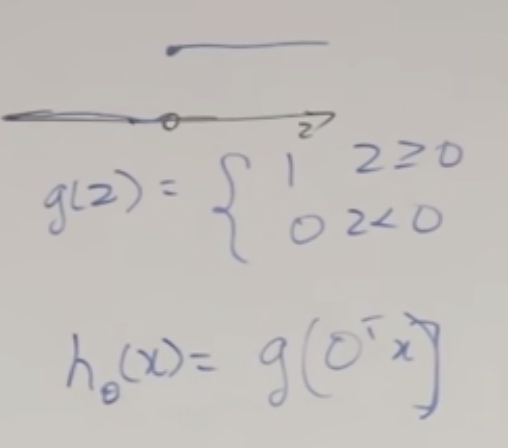 z
g(z) = { 1 z ≥ 0
0 z < 0
h_θ(x) = g(θ^T x)